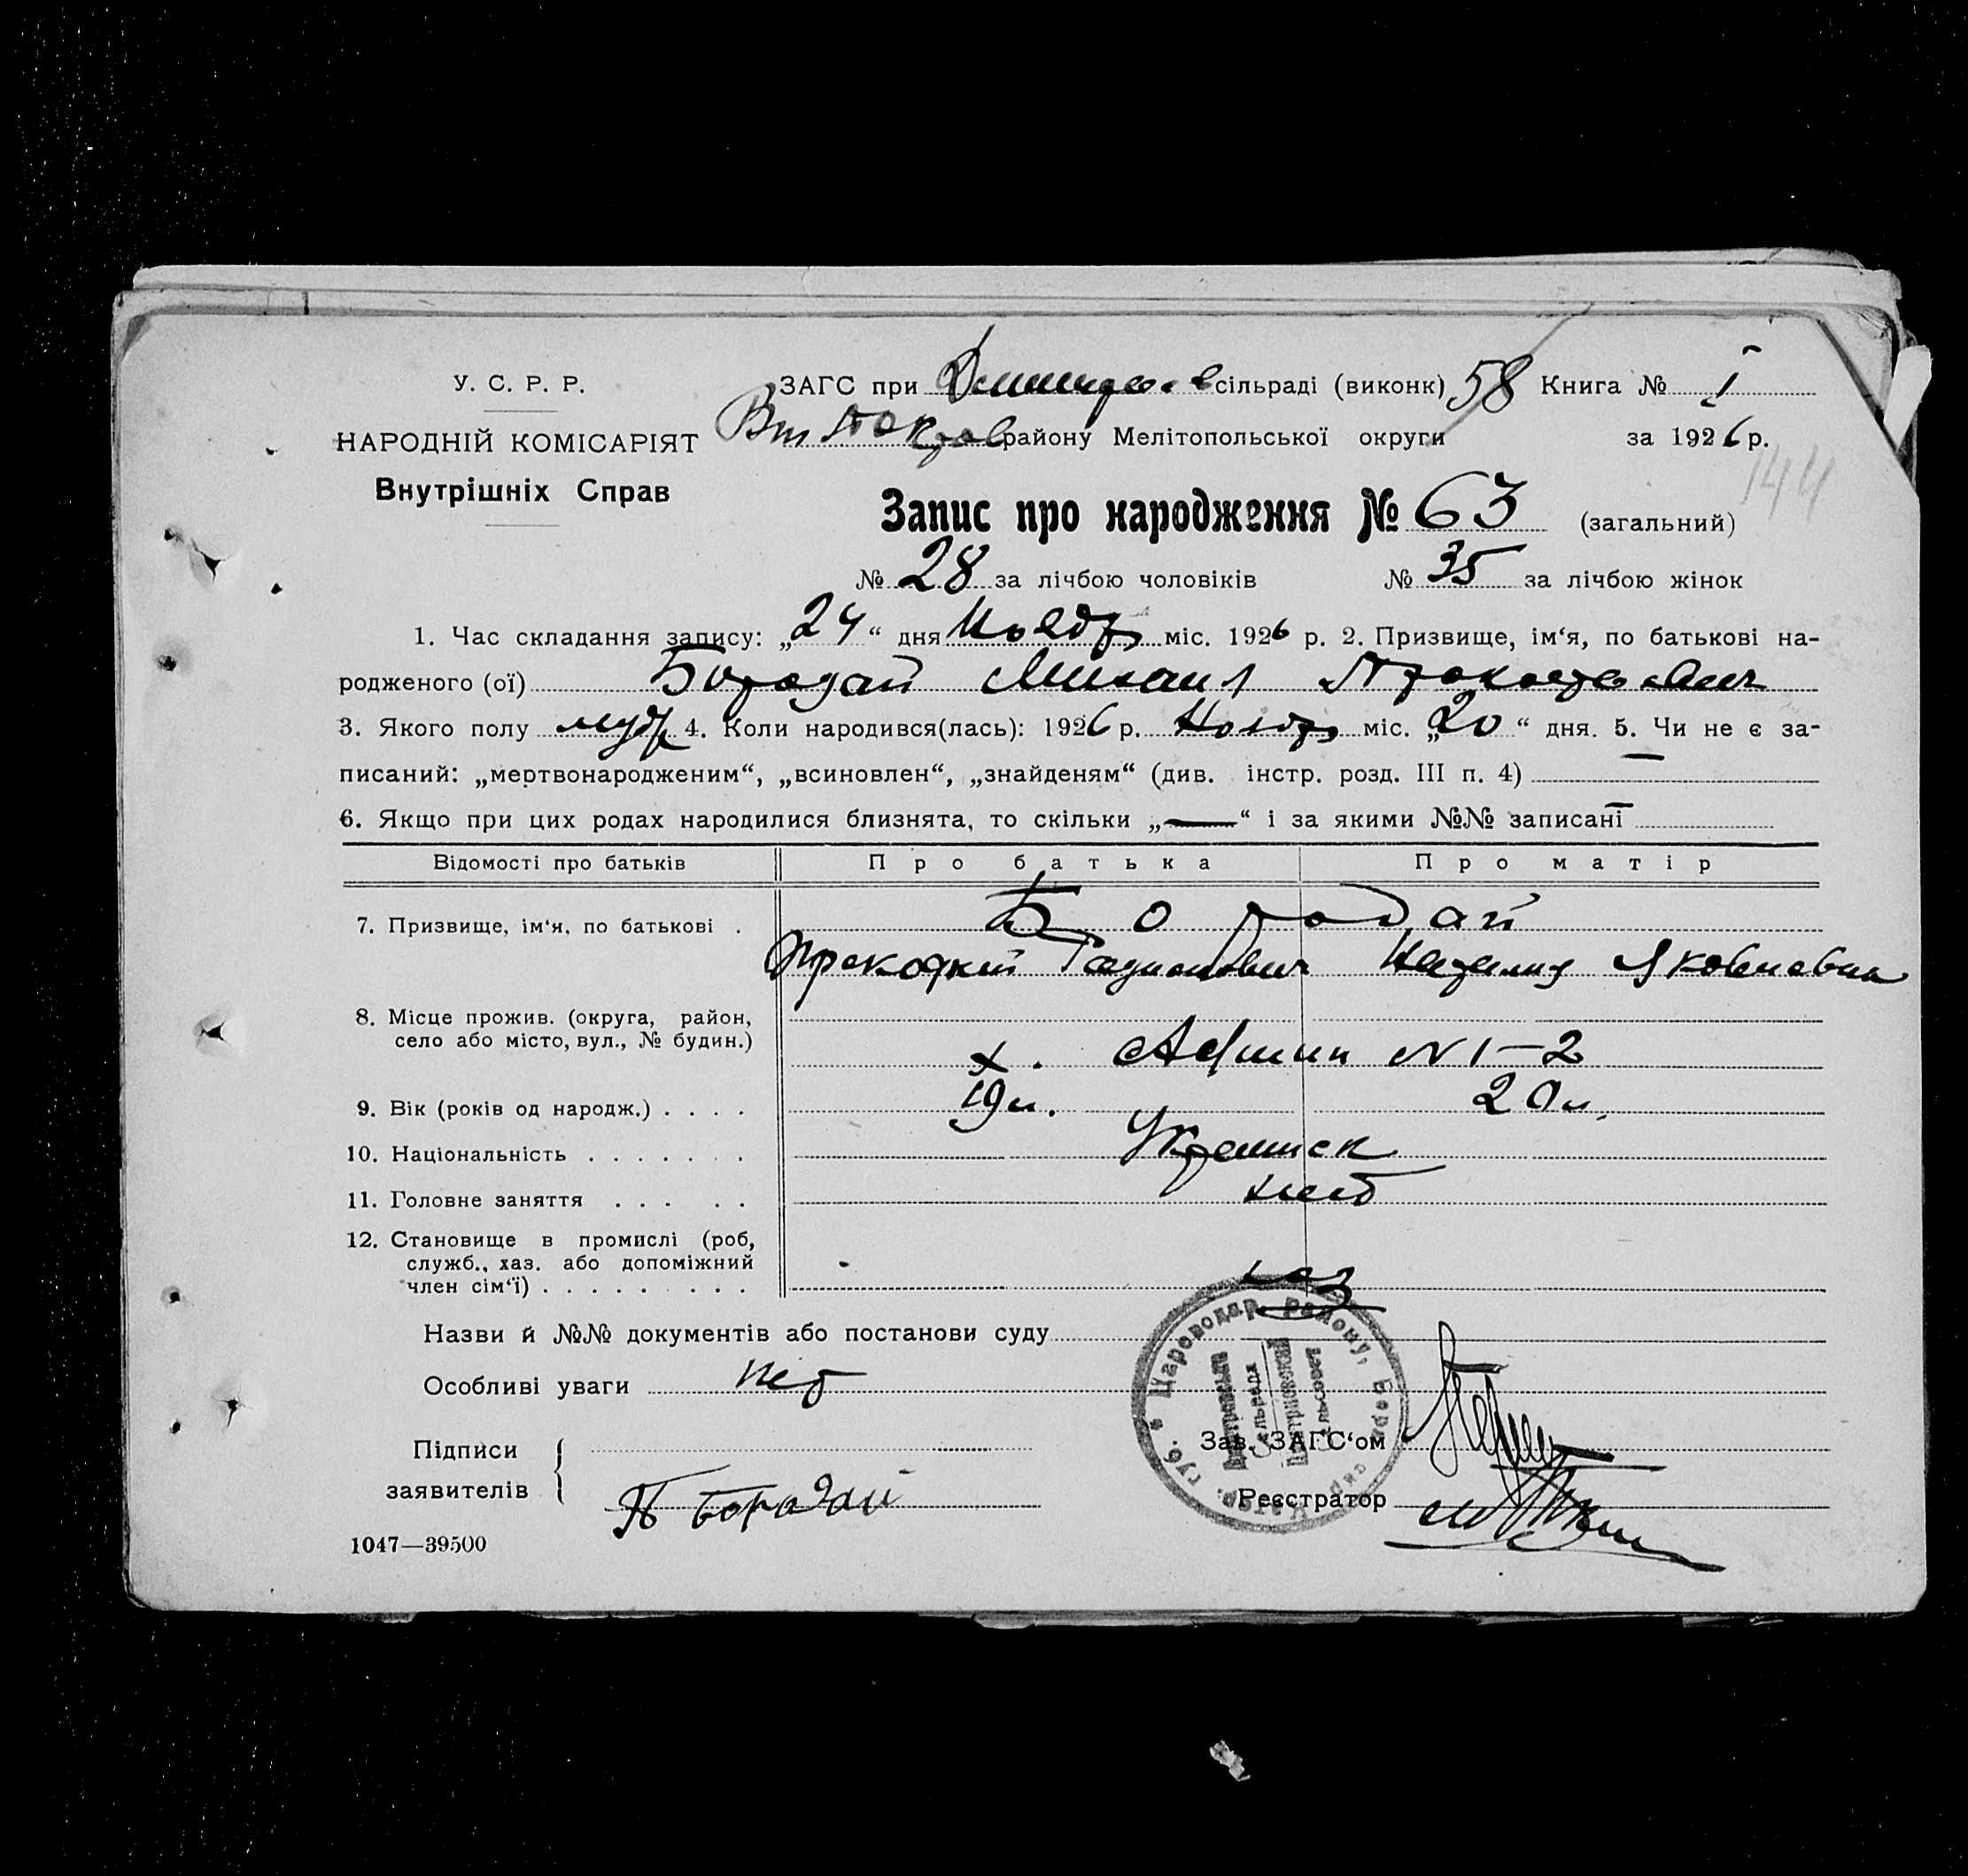 У. С. Р. Р.
НАРОДНІЙ КОМІСАРІЯТ
Внутрішніх Справ
ЗАГС при сільраді (виконк) 58 Книга № I
району Мелітопольської округи за 1926 р.
144
Запис про народження № 63 (загальний)
№ 28 за лічбою чоловіків № 35 за лічбою жінок
1. Час складання запису: „24“ дня Ноябр міс. 1926 р. 2. Призвище, ім‘я, по батькові на-
родженого (ої) Бородай Михаил
3. Якого полу 4. Коли народився(лась): 1926 р. Ноябр міс. „20“ дня. 5. Чи не є за-
писаний: „мертвонародженим“, „всиновлен“, „знайденям“ (див. інстр. розд. III п. 4) —
6. Якщо при цих родах народилися близнята, то скільки „—“ і за якими №№ записані —
Відомості про батьків Про батька Про матір
7. Призвище, ім‘я, по батькові . Бородай
Яковлевна
8. Місце прожив. (округа, район,
село або місто, вул., № будин.)
х. N 1—2
9. Вік (років од народж.) . . . . 19 л. 20 л.
10. Національність . . . . . . .
11. Головне заняття . . . . .
12. Становище в промислі (роб,
служб., хаз. або допоміжний
член сім‘ї) . . . . . . . . . хаз
Назви й №№ документів або постанови суду
Особливі уваги нет
Підписи
заявителів
П Бородай
Зав. ЗАГС‘ом
Реєстратор
Цареводар. Району,
1047—39500